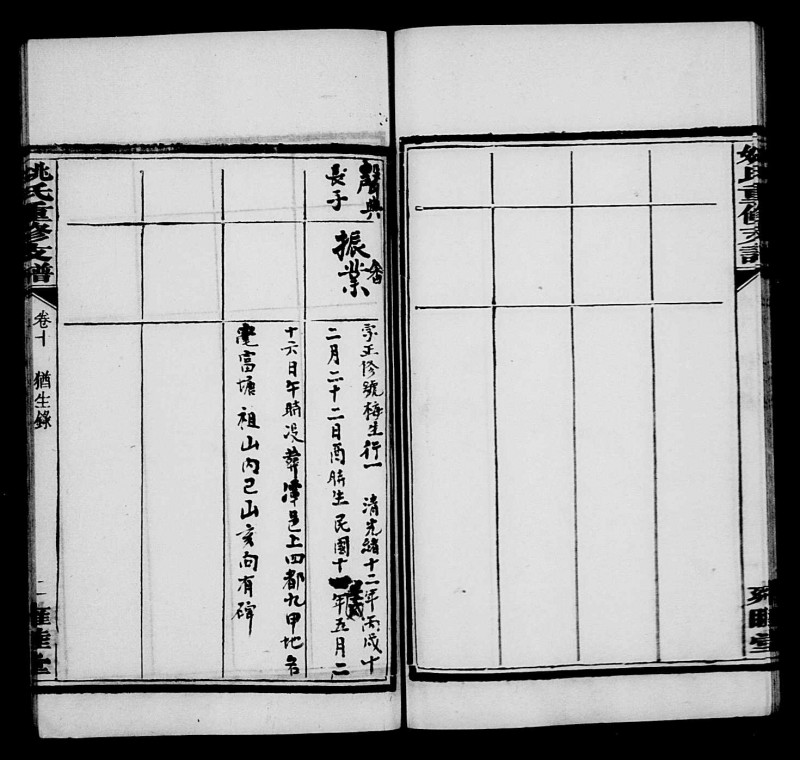 姚氏重修支譜
雍睦堂
聲典
長子
振業
字正修號梅生行一 清光緒十二年丙戌十
二月二十二日酉時生民國十一年壬戌五月二
十六日午時沒葬潭邑上四都九甲地名
富塘祖山內巳山亥向有碑
姚氏重修支譜 卷十 猶生錄 二 雍睦堂